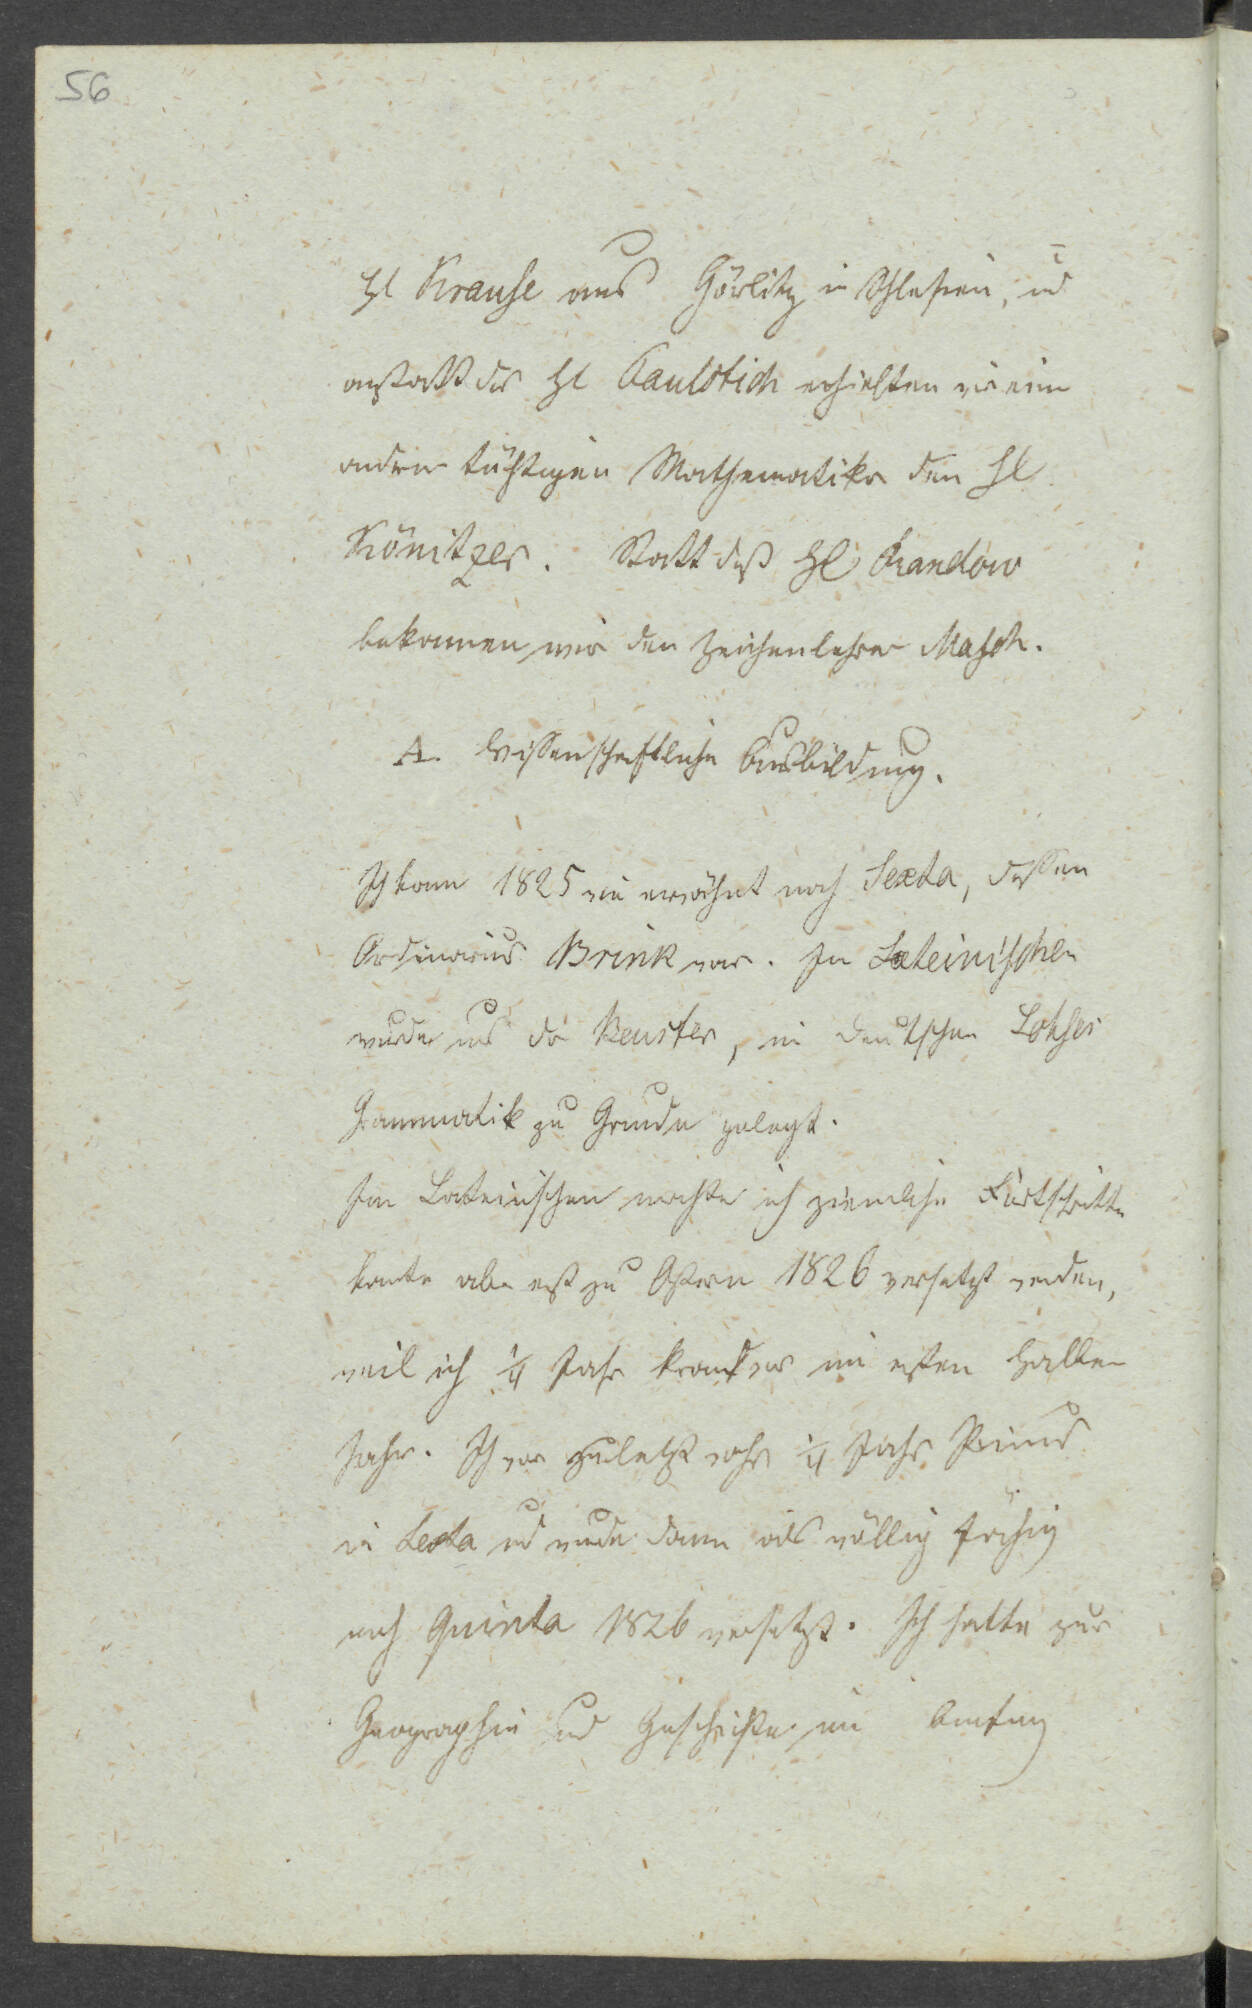 56
H Krause aus Görlitz in Schlesien, ud
anstatt des H Kaulbich erhielten wir einen
andern tüchtigen Mathematiker den H
Könitzer. Statt deß H Brandow
bekommen wir den Zeichenlehrer Masch.
A. Wissenschaftliche Ausbildung.
Ich kam 1825 wie erwähnt nach Sexta, dessen
Ordinarius Brink war. Im Lateinischen
wurde uns da Reuster, im Deutschen Lotzes
Grammatik zu Grunde gelegt.
Im Lateinischen machte ich ziemliche Fortschritte
konte aber erst zu Ostern 1826 versetzt werden,
weil ich ¼ Jahr krank war im ersten halben
Jahr. Ich war zuletzt ¼ Jahr Primus
in Sexta ud wurde dann als völlig fähig
nach Quinta 1826 versetzt. Ich hatte zur
Geographie ud Geschichte im Anfang